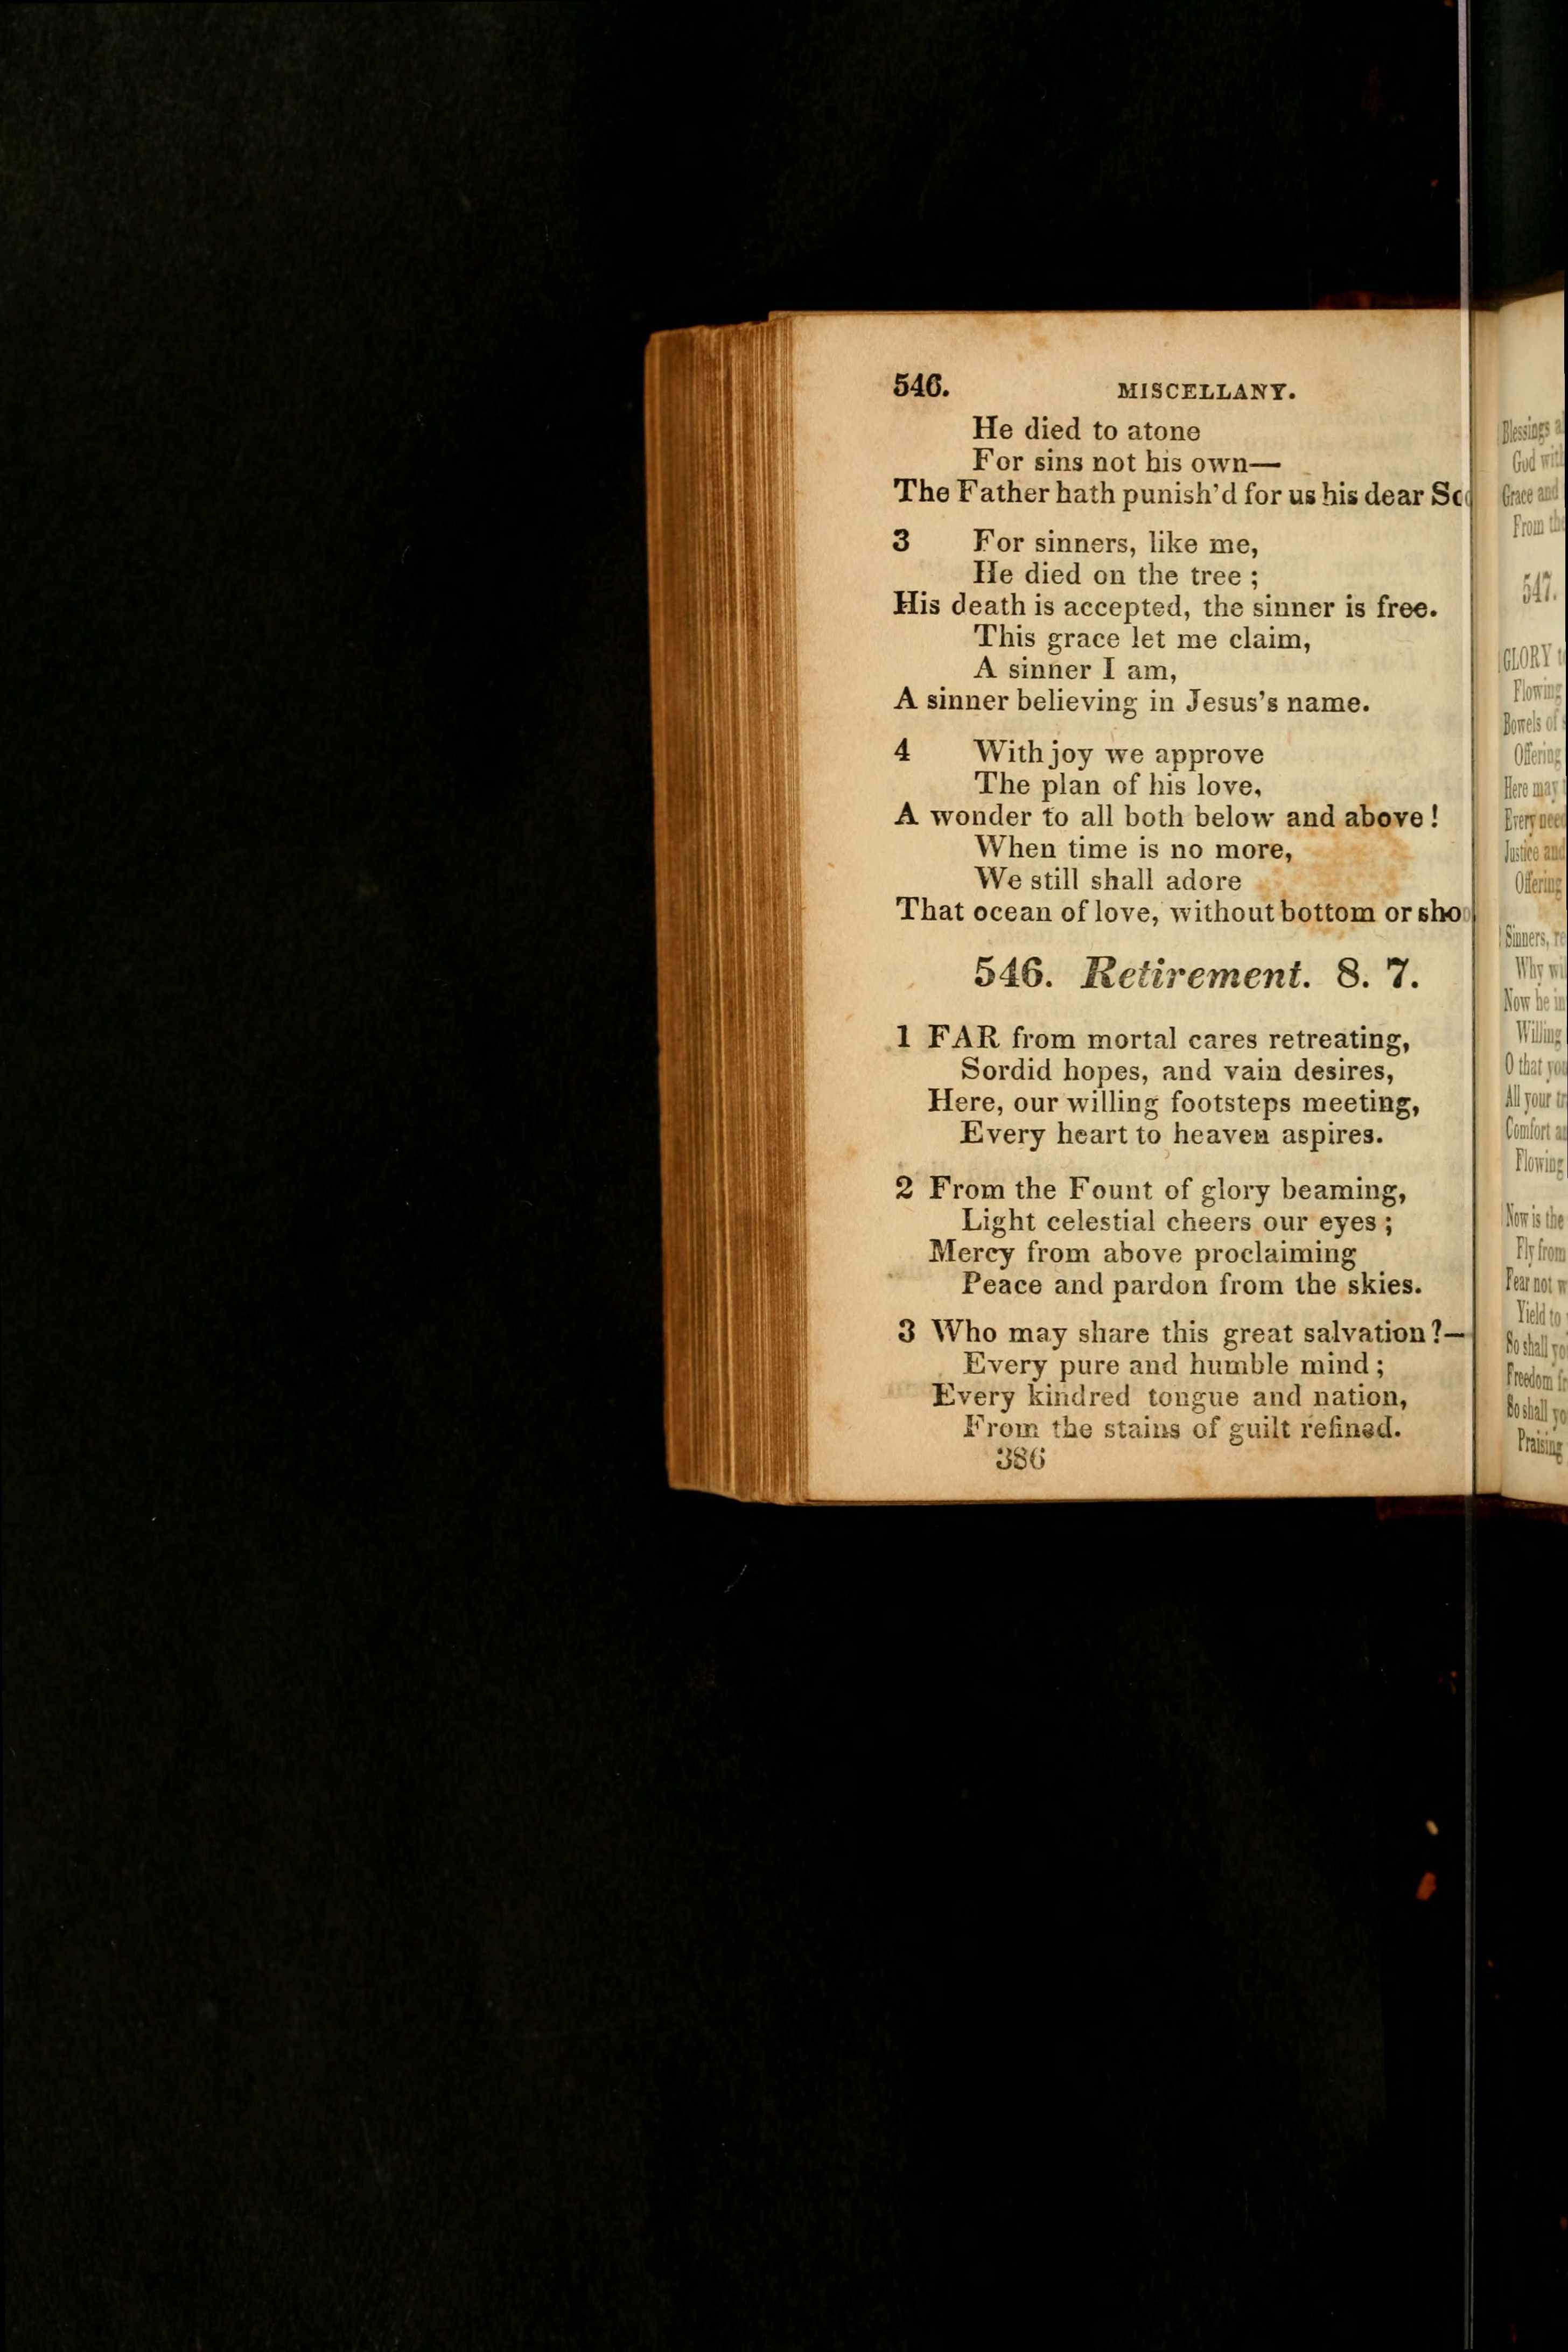 546. MISCELLANY.
He died to atone
For sins not his own—
The Father hath punish'd for us his dear
3 For sinners, like me,
He died on the tree ;
His death is accepted, the sinner is free.
This grace let me claim,
A sinner I am,
A sinner believing in Jesus's name.
4 With joy we approve
The plan of his love,
A wonder to all both below and above !
When time is no more,
We still shall adore
That ocean of love, without bottom or
546. Retirement. 8. 7.
1 FAR from mortal cares retreating,
Sordid hopes, and vain desires,
Here, our willing footsteps meeting,
Every heart to heaven aspires.
2 From the Fount of glory beaming,
Light celestial cheers our eyes ;
Mercy from above proclaiming
Peace and pardon from the skies.
3 Who may share this great salvation ?—
Every pure and humble mind ;
Every kindred tongue and nation,
From the stains of guilt refined.
386
Blessings
God
Grace and
From
547.
GLORY
Flowing
Bowels of
Offering
Here may
Every
Justice
Offering
Sinners,
Why
Now he
Willing
O that
All your
Comfort
Flowing
Now is the
Fly from
Fear not
Yield to
So shall
Freedom
So shall
Praising